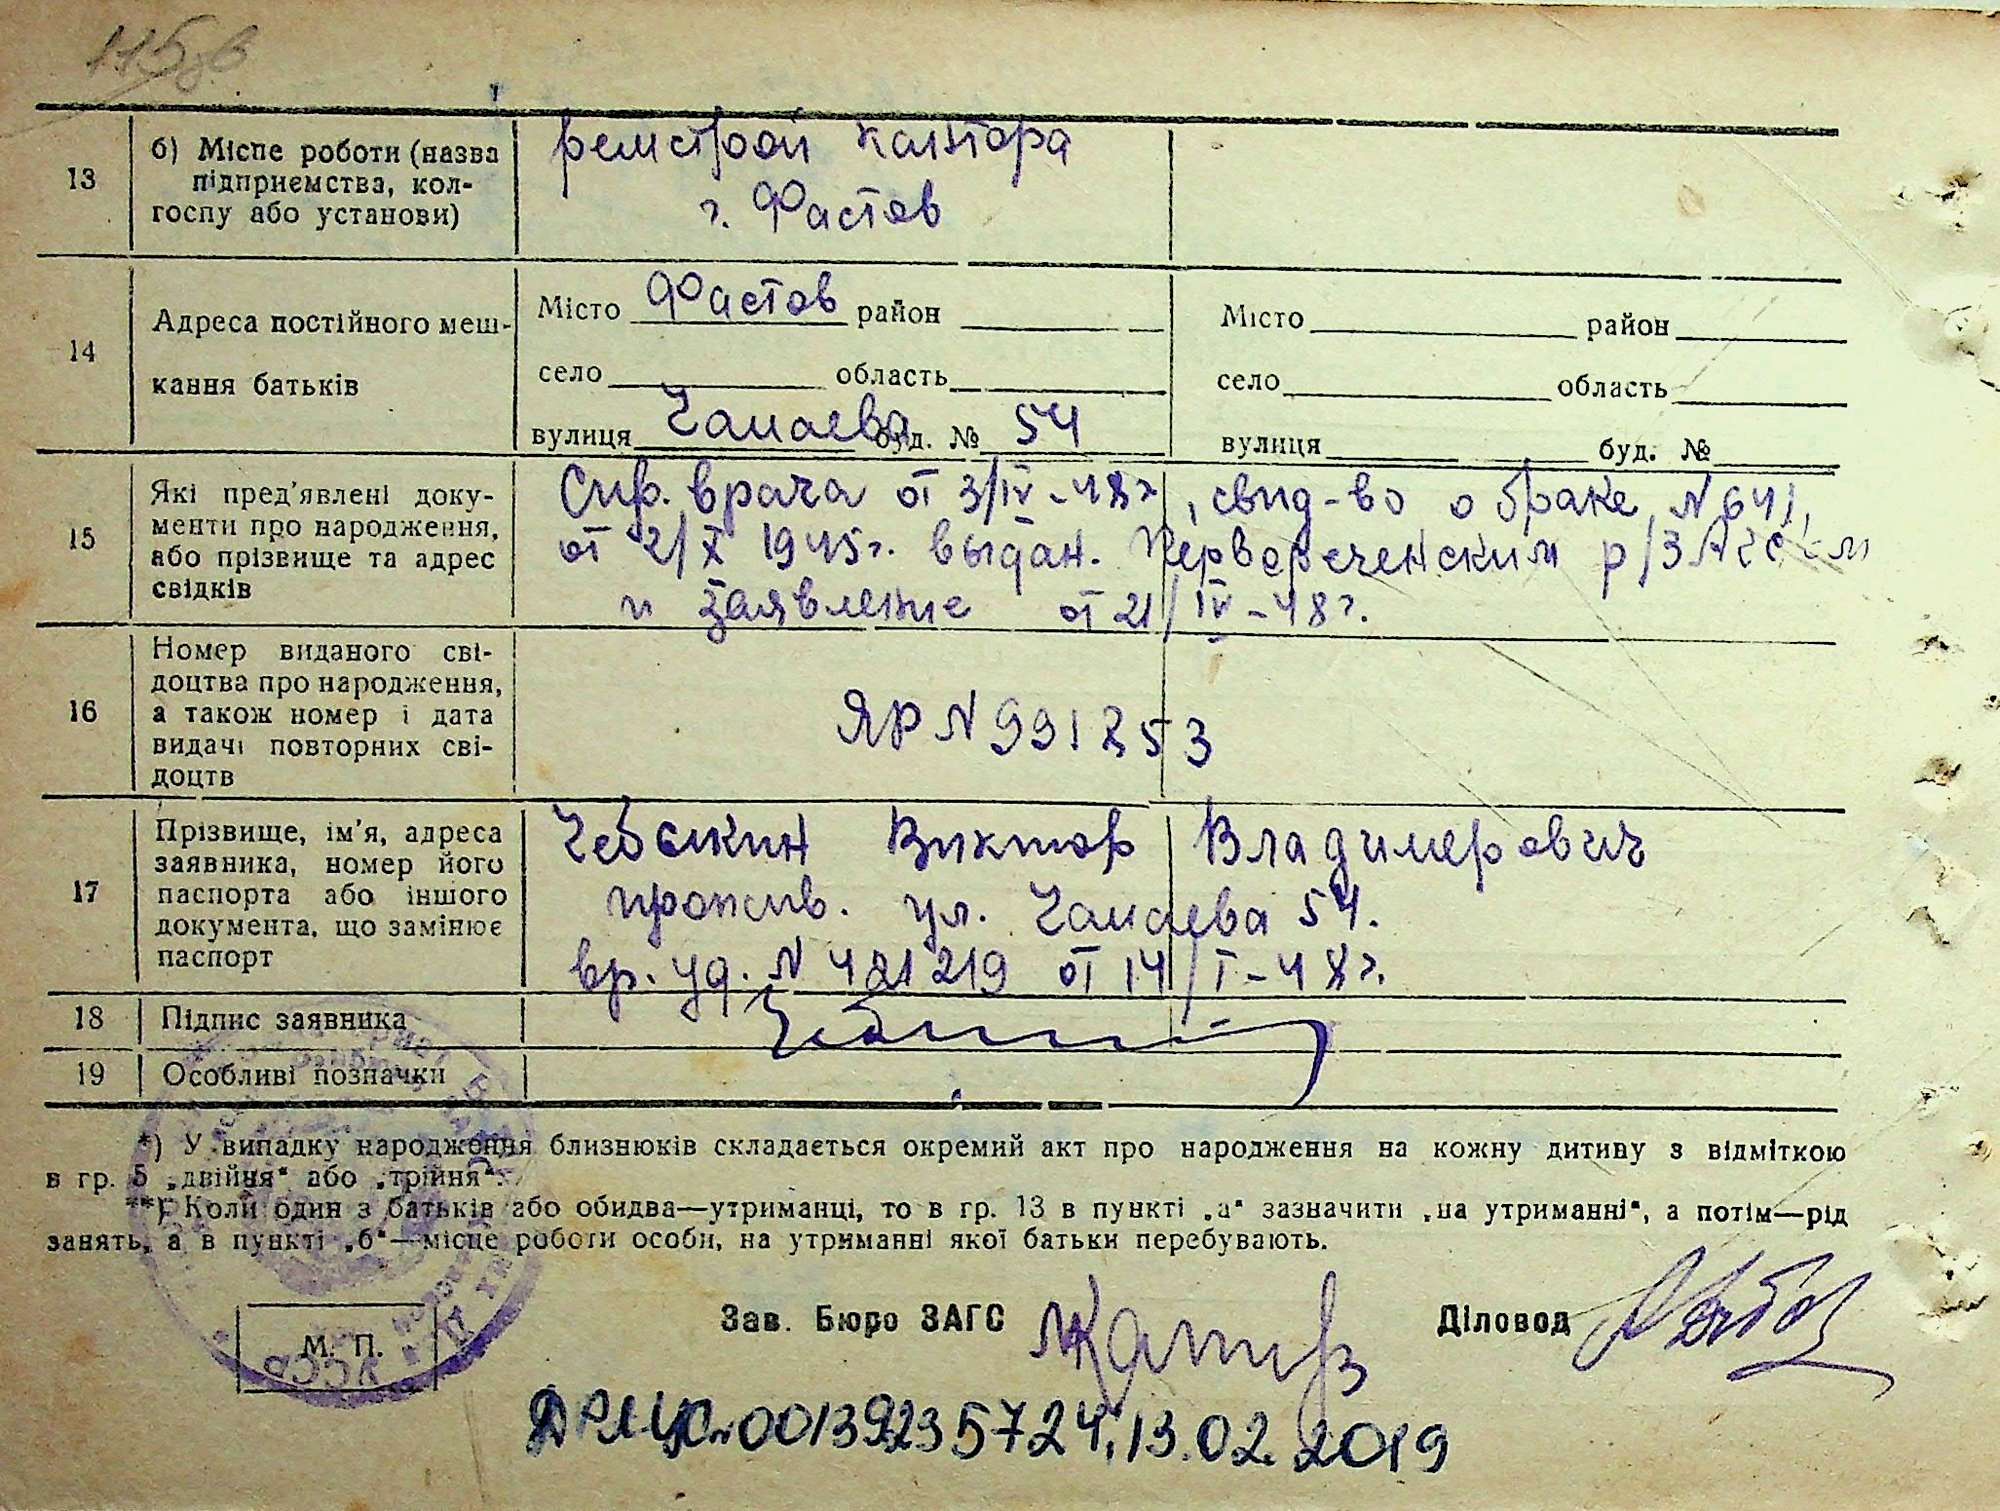 115 зв
13
б) Місце роботи (назва
підприємства, кол-
госпу або установи)
ремстрой контора
г. Фастов
14
Адреса постійного меш-
кання батьків
Місто Фастов район
село область
вулиця Чапаева буд. № 54
Місто район
село область
вулиця буд. №
15
Які пред'явлені доку-
менти про народження,
або прізвище та адрес
свідків
Спр. врача от 3/IV-48г, свид-во о браке N 641,
от 2/X 1945г. выдан. Первореченским р/ЗАГСом
и заявление от 21/IV-48г.
16
Номер виданого сві-
доцтва про народження,
а також номер і дата
видачі повторних сві-
доцтв
ЯР N 991253
17
Прізвище, ім'я, адреса
заявника, номер його
паспорта або іншого
документа, що замінює
паспорт
Виктор Владимерович
прожив. ул. Чапаева 54.
вр. уд. N 421219 от 14/I-48г.
18
Підпис заявника
19
Особливі позначки
*) У випадку народження близнюків складається окремий акт про народження на кожну дитину з відміткою
в гр. 5 „двійня“ або „трійня“.
**) Коли один з батьків або обидва—утриманці, то в гр. 13 в пункті „а“ зазначити „на утриманні“, а потім—рід
занять, а в пункті „б“—місце роботи особи, на утриманні якої батьки перебувають.
Зав. Бюро ЗАГС
Діловод
М. П.
УССР
00139235724, 13.02.2019